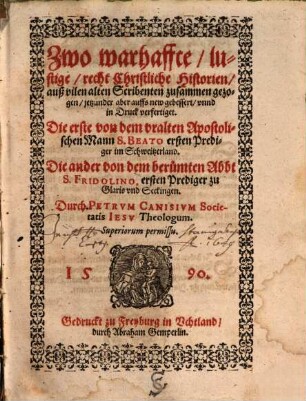 Zwo warhaffte / lu-
stige / recht Christliche Historien /
auß vilen alten Scribenten zusammen gezo-
gen / jetzunder aber auffs new gebessert / vnnd
in Druck verfertiget.
Die erste von dem vralten Apostoli-
schen Mann S. BEATO ersten Predi-
ger im Schweitzerland.
Die ander von dem berümten Abbt
S. FRIDOLINO, ersten Prediger zu
Glaris vnd Seckingen.
Durch PETRVM CANISIVM Socie-
tatis IESV Theologum.
Superiorum permissu.
15 90.
Gedruckt zu Freyburg in Vchtland /
durch Abraham Gemperlin.